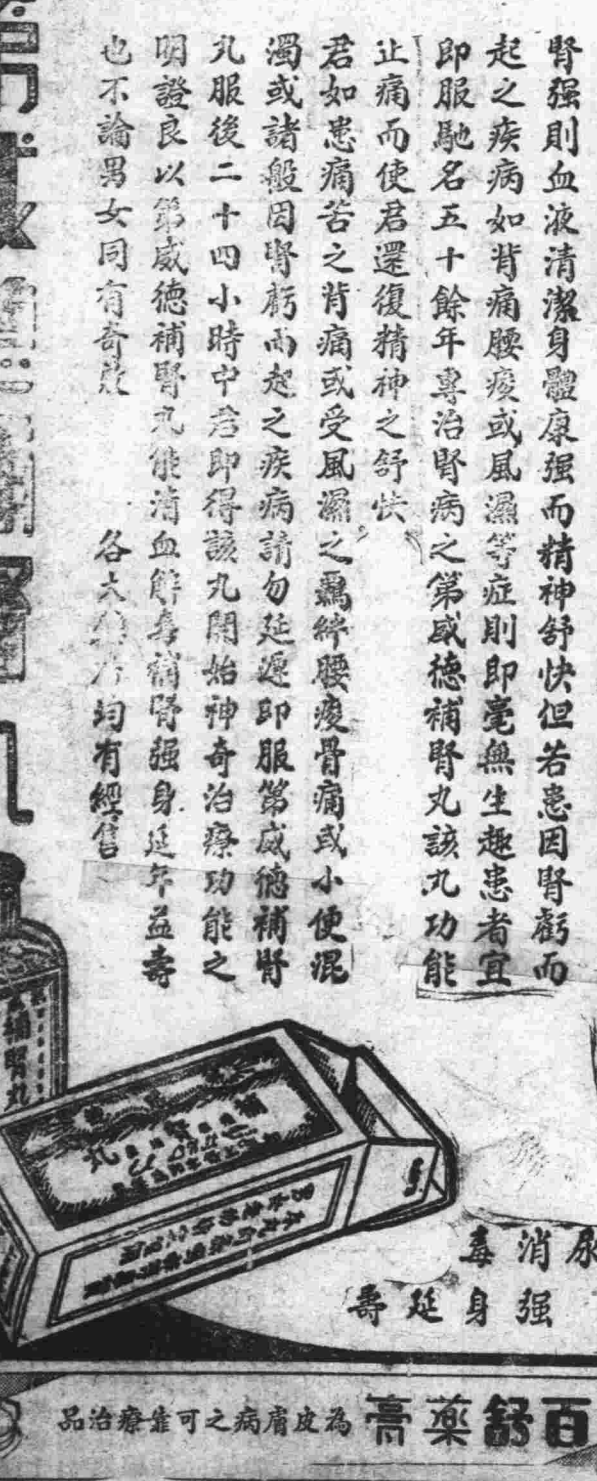 腎强則血液清潔身體康强而精神舒快但若患因腎虧而
起之疾病如背痛腰痠或風濕等症則即毫無生趣患者宜
即服馳名五十餘年專治腎病之第威德補腎丸該丸功能
止痛而使君還復精神之舒快
君如患痛苦之背痛或受風濕之羈絆腰痠骨痛或小便混
濁或諸般因腎虧而起之疾病請勿延遲即服第威德補腎
丸服後二十四小時中君即得該丸開始神奇治療功能之
明證良以第威德補腎丸能清血解毒補腎强身延年益壽
也不論男女同有奇效
各大藥房均有經售
補腎丸
尿消毒
强身延壽
百舒藥膏為皮膚病之可靠療治品